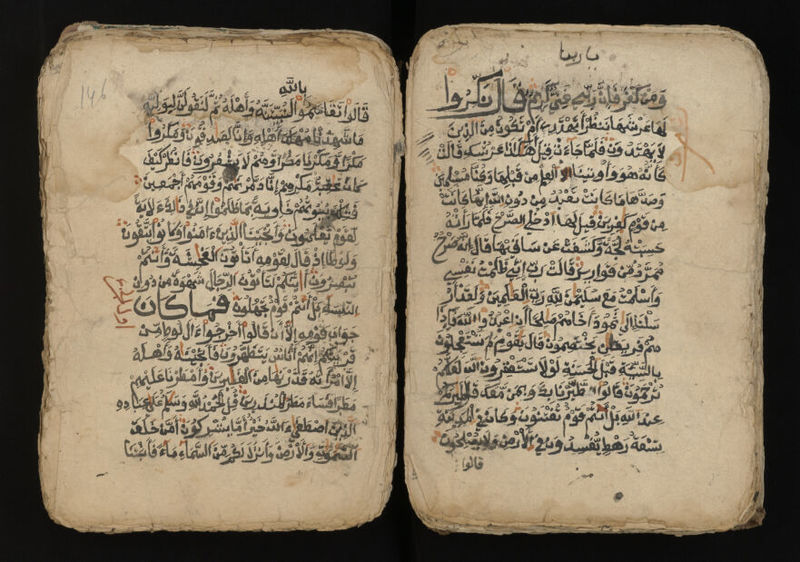 ومن كفر فإن ربي غني كريم قال نكروا
لها عرشها ننظر أتهتدي أم تكون من الذين
لا يهتدون فلما جاءت قيل أهكذا عرشك قالت
كأنه هو وأوتينا العلم من قبلها وكنا مسلمين
وصدها ما كانت تعبد من دون الله إنها كانت
من قوم كفرين قيل لها ادخلي الصرح فلما رأته
حسبته لجة وكشفت عن ساقيها قال إنه صرح
ممرد من قوارير قالت رب إني ظلمت نفسي
وأسلمت مع سليمن لله رب العلمين ولقد أر
سلنا إلى ثمود أخاهم صلحا أن اعبدوا الله فإذا
هم فريقان يختصمون قال يقوم لم تستعجلون
بالسيئة قبل الحسنة لولا تستغفرون الله لعلكم
ترحمون قالوا اطيرنا بك وبمن معك قال طيركم
عند الله بل أنتم قوم تفتنون وكان في المدينة
تسعة رهط يفسدون في الأرض ولا يصلحون
قالوا
146
بالله
قالوا تقاسموا لنبيتنه وأهله ثم لنقولن لوليه
ما شهدنا مهلك أهله وإنا لصدقون ومكروا
مكرا ومكرنا مكرا وهم لا يشعرون فانظر كيف
كان عقبة مكرهم إنا دمرنهم وقومهم أجمعين
فتلك بيوتهم خاوية بما ظلموا إن في ذلك لآية
لقوم يعلمون وأنجينا الذين ءامنوا وكانوا يتقون
ولوطا إذ قال لقومه أتأتون الفحشة وأنتم
تبصرون أئنكم لتأتون الرجال شهوة من دون
النساء بل أنتم قوم تجهلون فما كان
جواب قومه إلا أن قالوا أخرجوا ءال لوط من
قريتكم إنهم أناس يتطهرون فأنجينه وأهله
إلا امرأته قدرنها من الغبرين وأمطرنا عليهم
مطرا فساء مطر المنذرين قل الحمد لله وسلم على عباده
الذين اصطفى ءالله خير أما تشركون أمن خلق
السموت والأرض وأنزل لكم من السماء ماء فأنبتنا